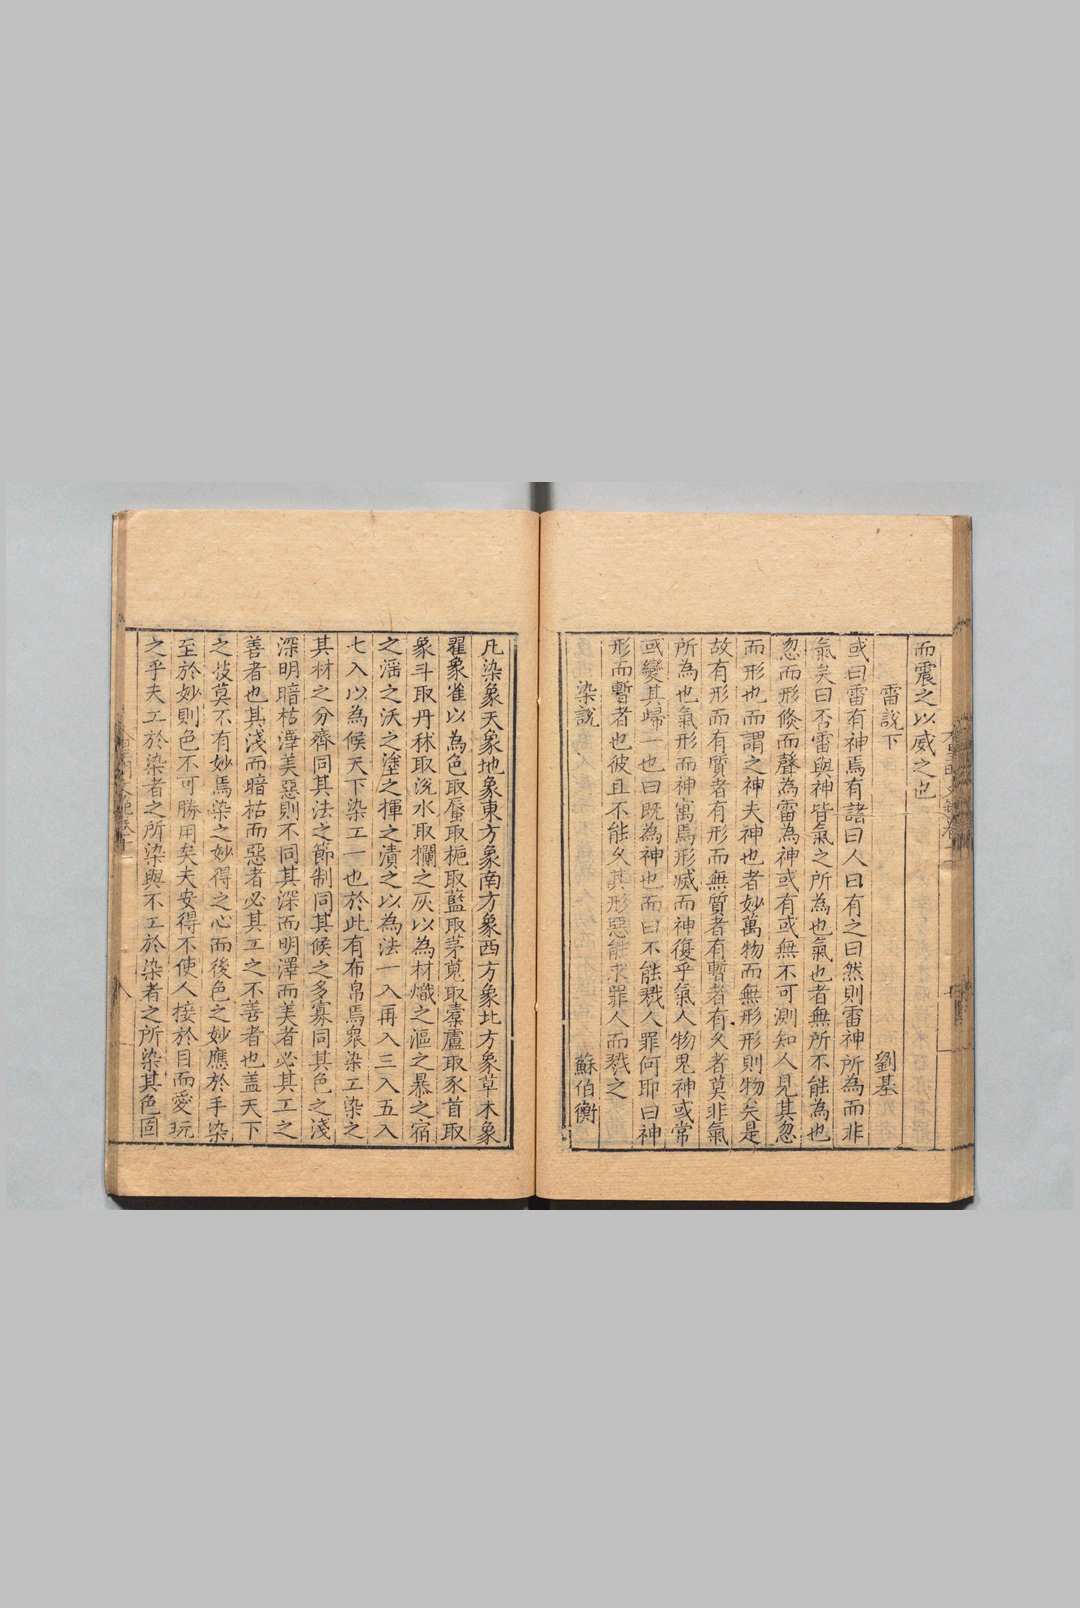 而震之以威之也
雷說下 劉基
或曰雷有神焉有諸曰人曰有之曰然則雷神所為而非
氣矣曰否雷與神皆氣之所為也氣也者無所不能為也
忽而形倐而聲為雷為神或有或無不可測知人見其忽
而形也而謂之神夫神也者妙萬物而無形形則物矣是
故有形而有質者有形而無質者有暫者有久者莫非氣
所為也氣形而神寓焉形滅而神復乎氣人物鬼神或常
或變其歸一也曰既為神也而曰不能戮人罪何耶曰神
形而暫者也彼且不能久其形惡能求罪人而戮之
染說 蘇伯衡
凡染象天象地象東方象南方象西方象北方象草木象
翟象雀以為色取蜃取梔取藍取茅蒐取橐盧取豕首取
象斗取丹秫取涗水取欄之灰以為材熾之漚之暴之宿
之滛之沃之塗之揮之漬之以為法一入再入三入五入
七入以為候天下染工一也於此有布帛焉衆染工染之
其材之分齊同其法之節制同其候之多寡同其色之淺
深明暗枯澤美惡則不同其深而明澤而美者必其工之
善者也其淺而暗枯而惡者必其工之不善者也盖天下
之技莫不有妙焉染之妙得之心而後色之妙應於手染
至於妙則色不可勝用矣夫安得不使人接於目而愛玩
之乎夫工於染者之所染與不工於染者之所染其色固